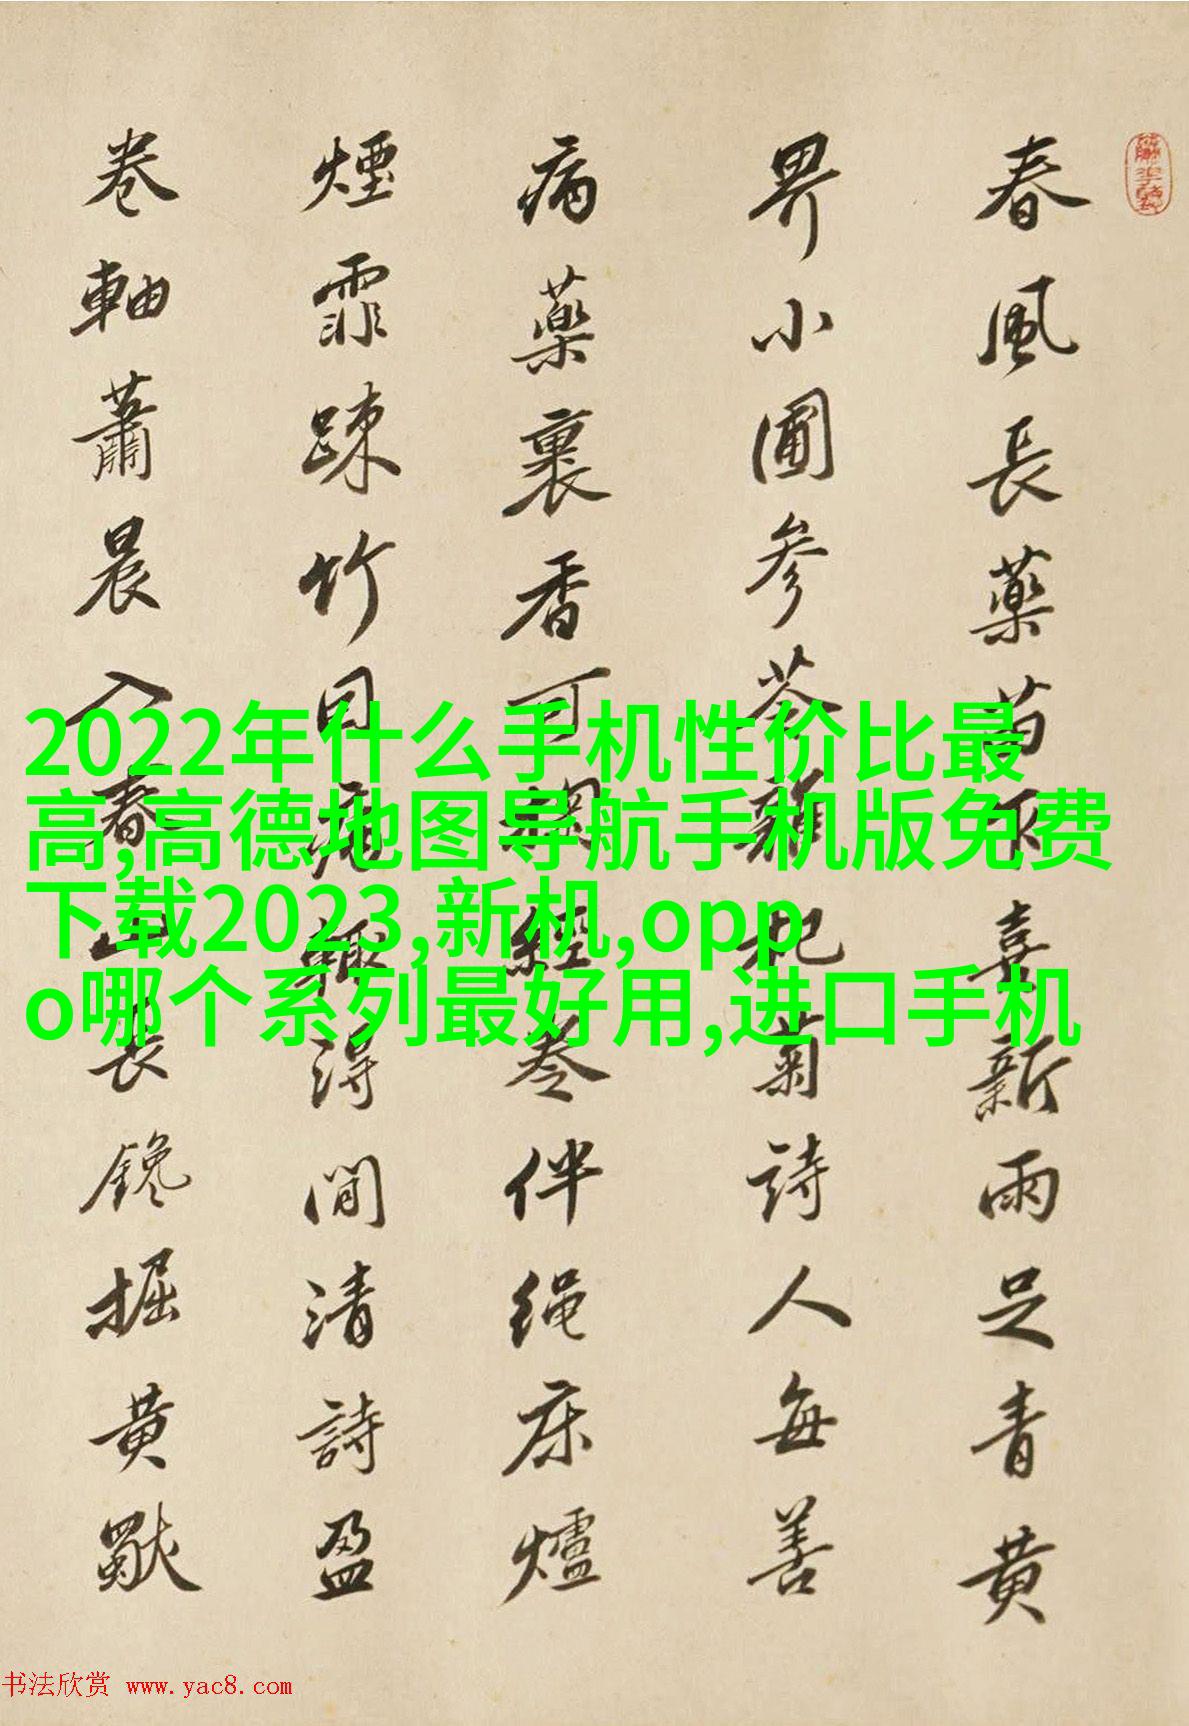 春風長藥苗下喜新雨足青黃
界小圃參苓雜杞菊詩人每善
病藥裹香可親經卷伴繩床爐
煙霏踈竹日晚輒得閒清詩盈
卷軸蕭晨入春山長鑱掘黃獨
2022年什么手机性价比最
高,高德地图导航手机版免费
下载2023,新机,opp
o哪个系列最好用,进口手机
书法欣赏 www.yac8.com